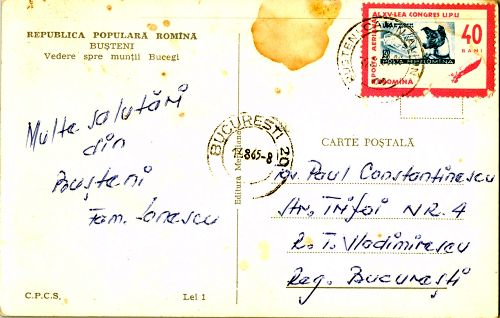 REPUBLICA POPULARĂ ROMÎNĂ
BUȘTENI
Vedere spre munții Bucegi
Multe salutări
din
Bușteni
Fam. Ionescu
C.P.C.S.
Lei 1
Editura
BUCUREȘTI 20
8 65-8
AL XV-LEA CONGRES U.P.U
POSTA AERIANA
40
BANI
POSTA R.P. ROMINA
BUȘTENI
CARTE POȘTALĂ
Paul Constantinescu
Str. Trifoi NR. 4
R. T. Vladimirescu
Reg. București